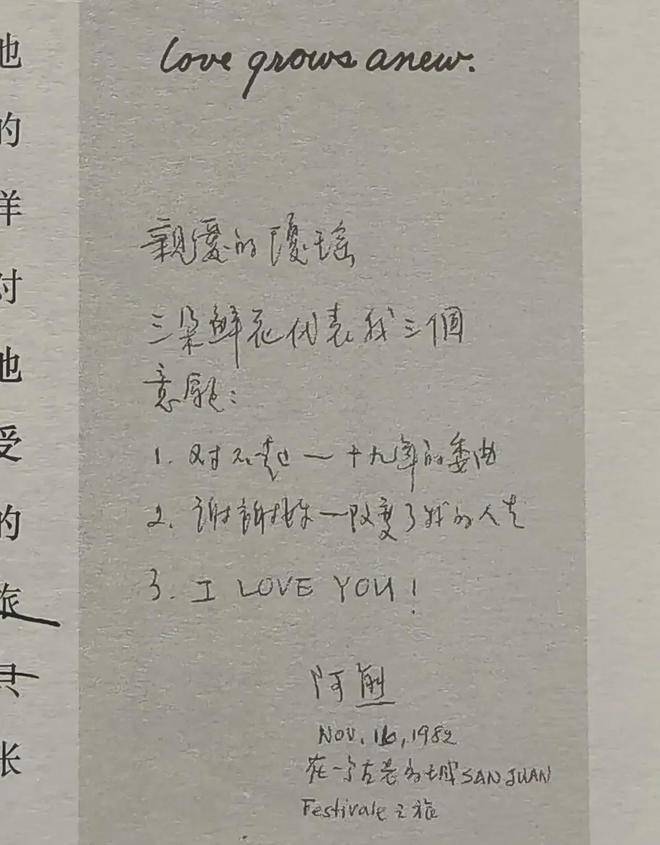 love grows anew.
親愛的瓊瑤
三朵鮮花代表我三個
意願：
1. 对不起一十九年的委曲
2. 謝謝妳一改變了我的人生
3. I LOVE YOU!
阿熊
NOV, 16, 1982
在一个古老的城 SAN JUAN
Festivale 之旅
他
的
样
对
他
受
的
旅
只
张